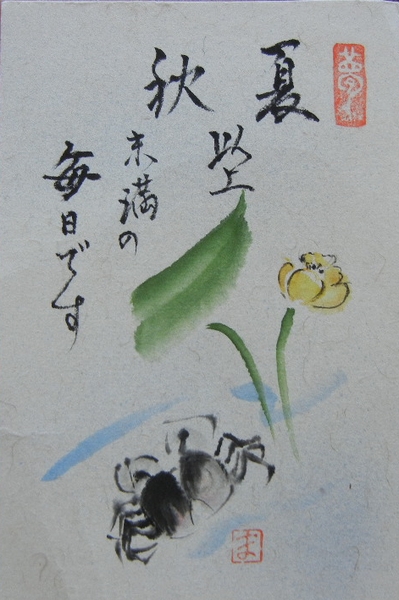 夏
以上
秋
未満の
毎日です
ま